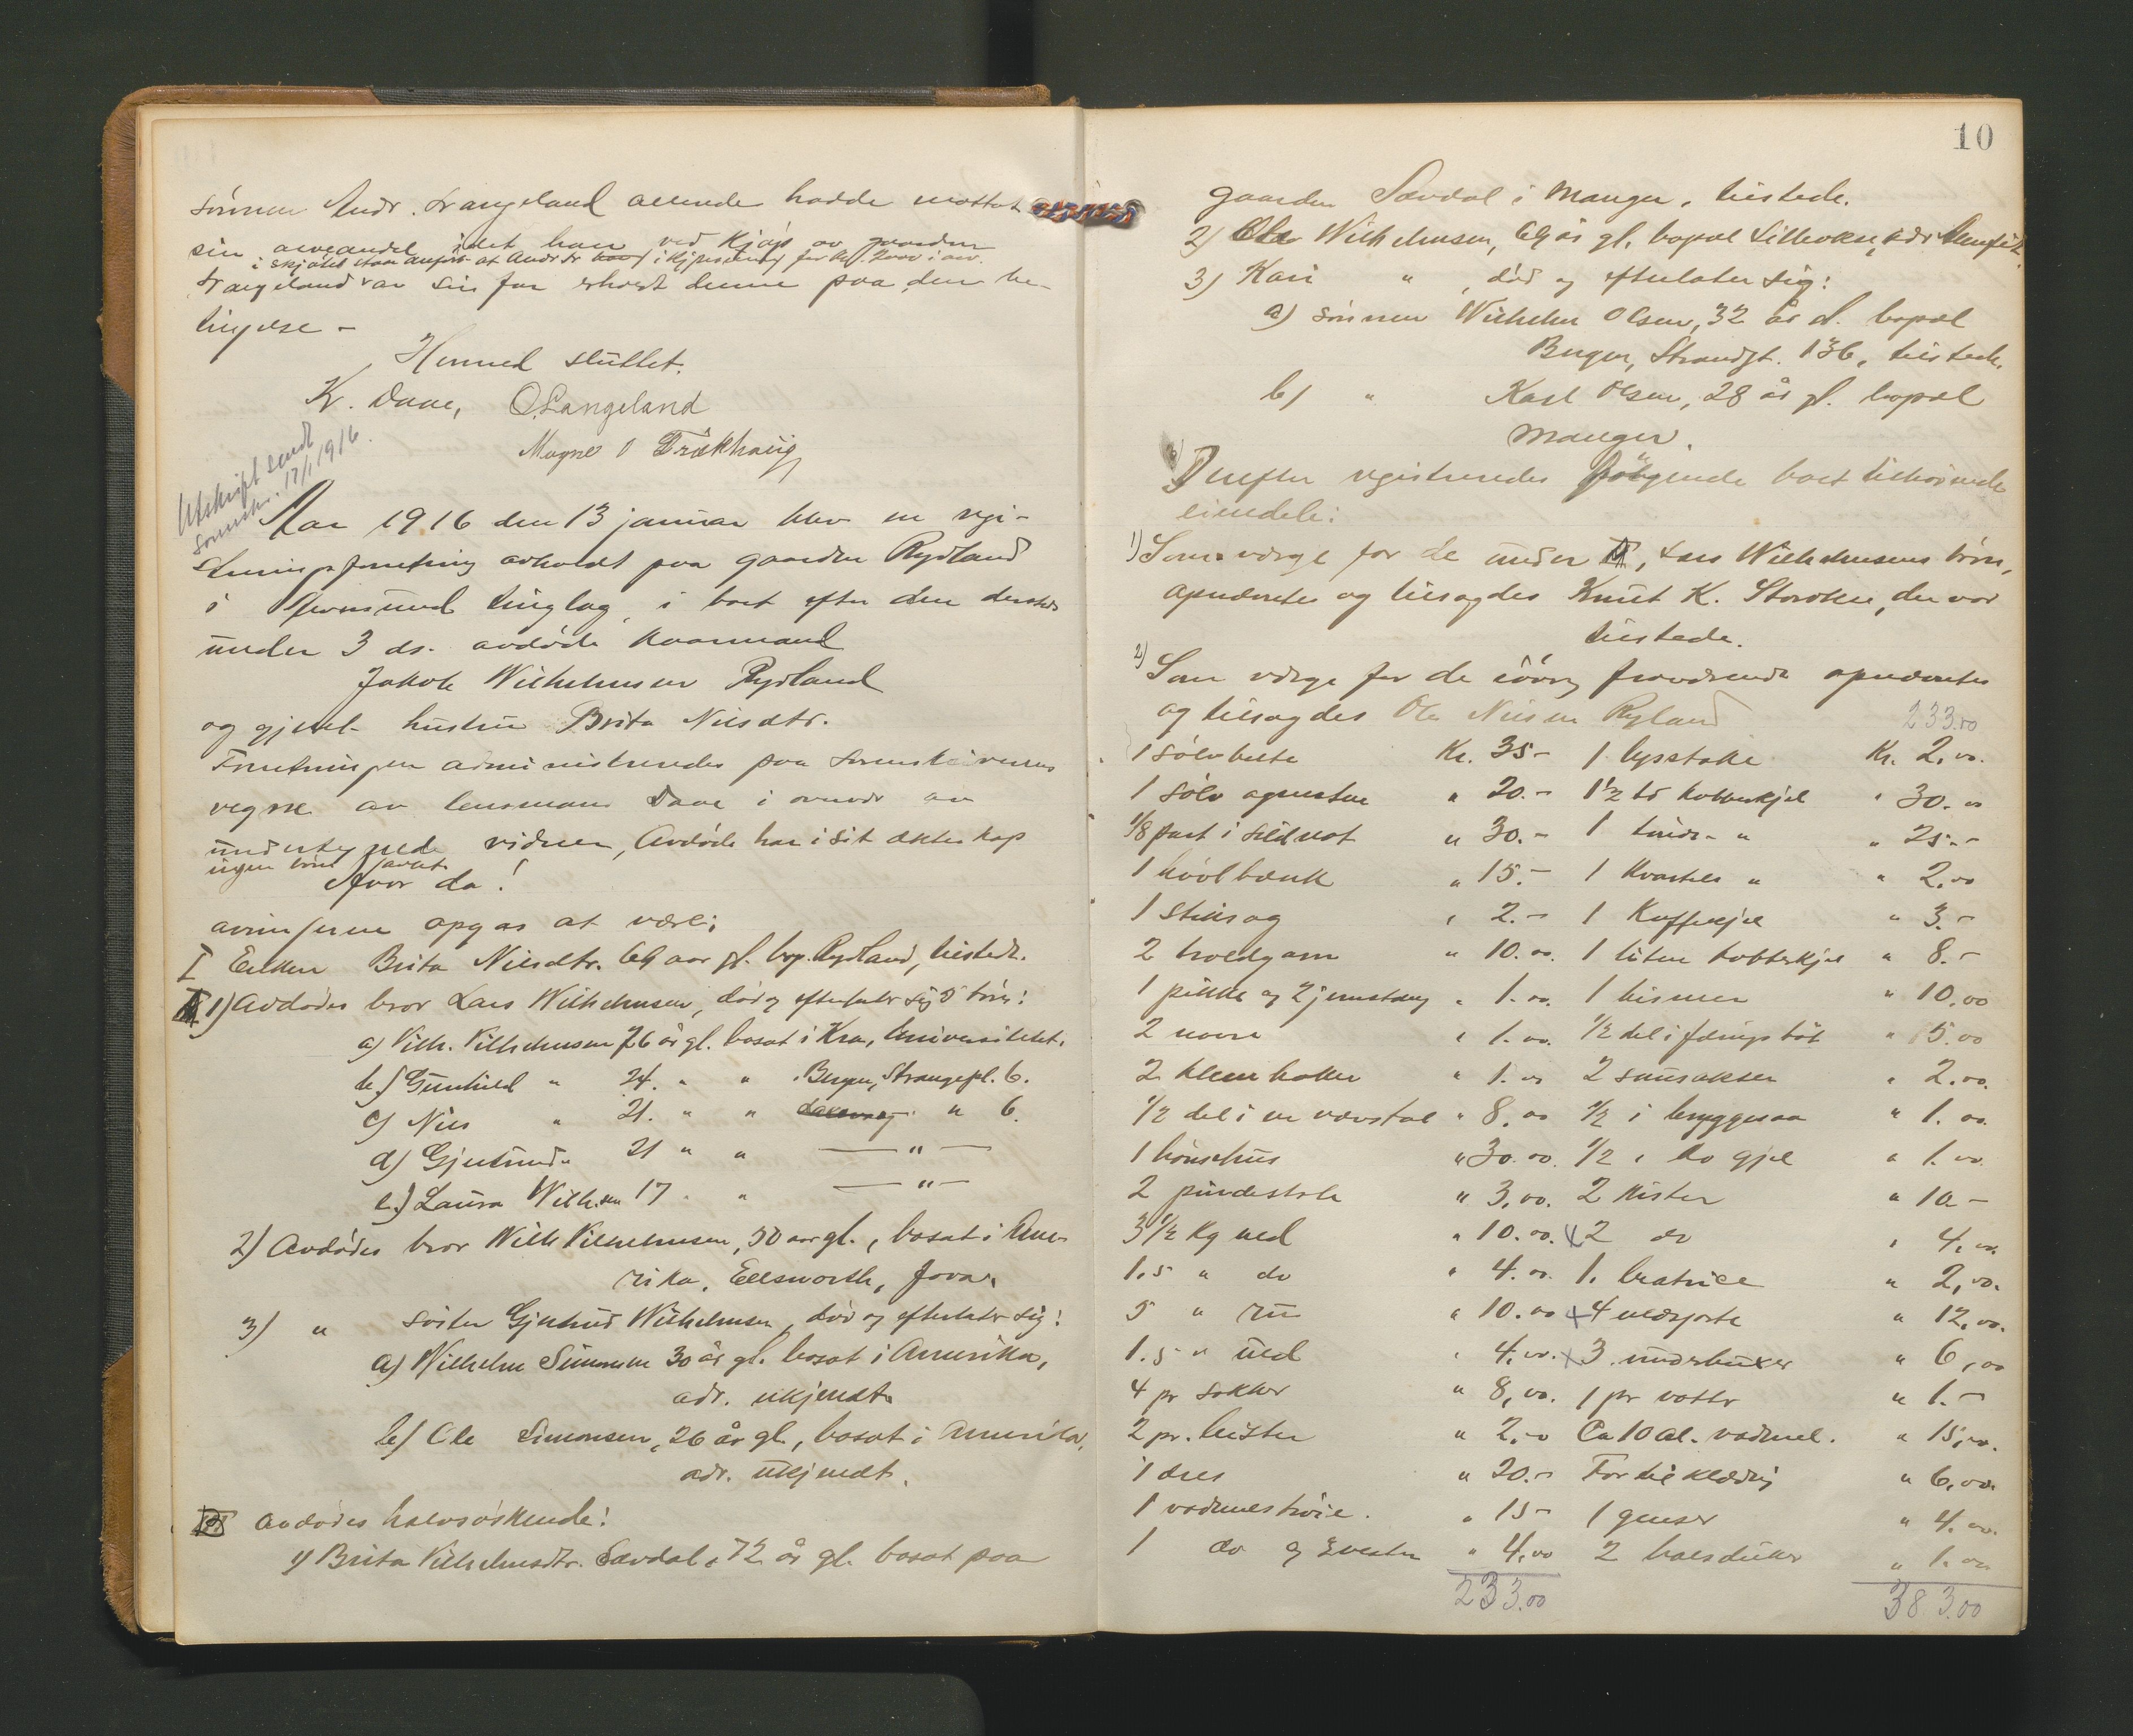 sønnen Andr. Langeland allerede hadde mottat
sin arveandel idet han ved kjøp av gaarden
i skjøtet staar anført at Andr. Lr i kjøpesum for Kr. 2000 i arv.
Langeland av sin far erholdt denne paa den be-
tingelse –
Hermed sluttet.
Kr. Daae, O. Langeland
Magne O Trækhaug
Utskrift sendt
sorenskr. 17/1 1916.
Aar 1916 den 13 januar blev en regi-
streringsforretning avholdt paa gaarden Rydland
i tinglag, i boet efter den dersteds
under 3 ds. avdøde kaarmand
Jakob Wilhelmsen Rydland
og gjenl. hustru Brita Nilsdtr.
Forretningen administreredes paa sorenskriverens
vegne av lensmann Daae i overvær av
undertegnede vidner, Avdøde har i sit ekteskap
ingen børn avlet
Hvor da!
arvingerne opgas at være:
I Enken Brita Nilsdtr. 69 aar gl. bop. Rydland, tilstede.
II 1) Avdødes bror Lars Wilhelmsen, død og efterlater sig 5 børn:
a) Vilh. Vilhelmsen 26 år gl. bosat i Kra, Universitetet.
b) Gunhild " 24. " " Bergen, Strangepl. 6.
c) Nils " 21. " " " 6.
d) Gjertrud " 21 " " — " —
e) Laura Wilh.sen 17 " " — " —
2) Avdødes bror Wilh Vilhelmsen, 50 aar gl., bosat i Ame-
rika, Ellsworth, Jova.
3) " søster Gjertrud Wilhelmsen, død og efterlater sig:
a) Wilhelm Simonsen 30 år gl. bosat i Amerika,
adr. ukjendt.
b) Ole Simonsen, 26 år gl., bosat i Amerika,
adr. ukjendt.
III Avdødes halvsøskende:
1) Brita Vilhelmsdtr. Sævdal, 72 år gl. bosat paa
10
gaarden Sævdal i Manger, tilstede.
2) Ola Wilhelmsen, 69 år gl. bopæl Lilleoksa,
3) Kari " , død og efterlater sig:
a) sønnen Wilhelm Olsen, 32 år gl. bopæl
Bergen, Strandgt. 136, tilstede.
b) " Karl Olsen, 28 år gl. bopæl
Manger.
Derefter registreredes følgende boet tilhørende
eiendele:
1) Som verge for de under II, Lars Wilhelmsens børn,
opnævntes og tilsagdes Knut K. Storoksen, der var
tilstede.
2) Som verge for de øvrig fraværende opnævntes
og tilsagdes Ole Nilsen Rydland 233.00
1 sølvbelte Kr. 35.- 1 lysstake Kr. 2,00.
1 sølv agnostur " 20.- 1 1/2 td kobberkjel " 30.00
1/8 part i sildnot " 30.- 1 tønde- " " 25.-
1 høvlbænk " 15.- 1 kvartels " " 2,00
1 stiksag " 2.- 1 Kaffekjel " 3.-
2 troldgarn " 10.00. 1 liten kobberkjel " 8.-
1 pikke og 2 jernstang " 1.00. 1 bismer " 10,00
2 navre " 1.00. 1/2 del i føringsbåt " 5.00
2 kleenhaker " 1.00 2 sausakser " 2.00.
1/2 del i en vævstol " 8.00 1/2 i bryggesaa " 1.00.
1 hønsehus " 30.00. 1/2 i do gjel " 1.00.
2 pindestole " 3,00. 2 kister " 10-
3 1/2 kg uld " 10.00. x 2 do " 4,00.
1.5 " do " 4.00. 1. bratrice " 2,00.
5 " ru " 10.00 x 4 uldsjorte " 12,00.
1.5 " uld " 4.00. x 3 underbukser " 6,00
4 pr sokker " 8,00. 1 pr votter " 1.-
2 pr. leister " 2,00 Ca 10 al. vadmel. " 15,00.
1 dres " 20.- For til klædning " 6,00.
1 vadmelstrøie. " 15- 1 genser " 4.00.
1 do og 2 vester " 4,00 2 halsduker " 1.00
233.00 383.00